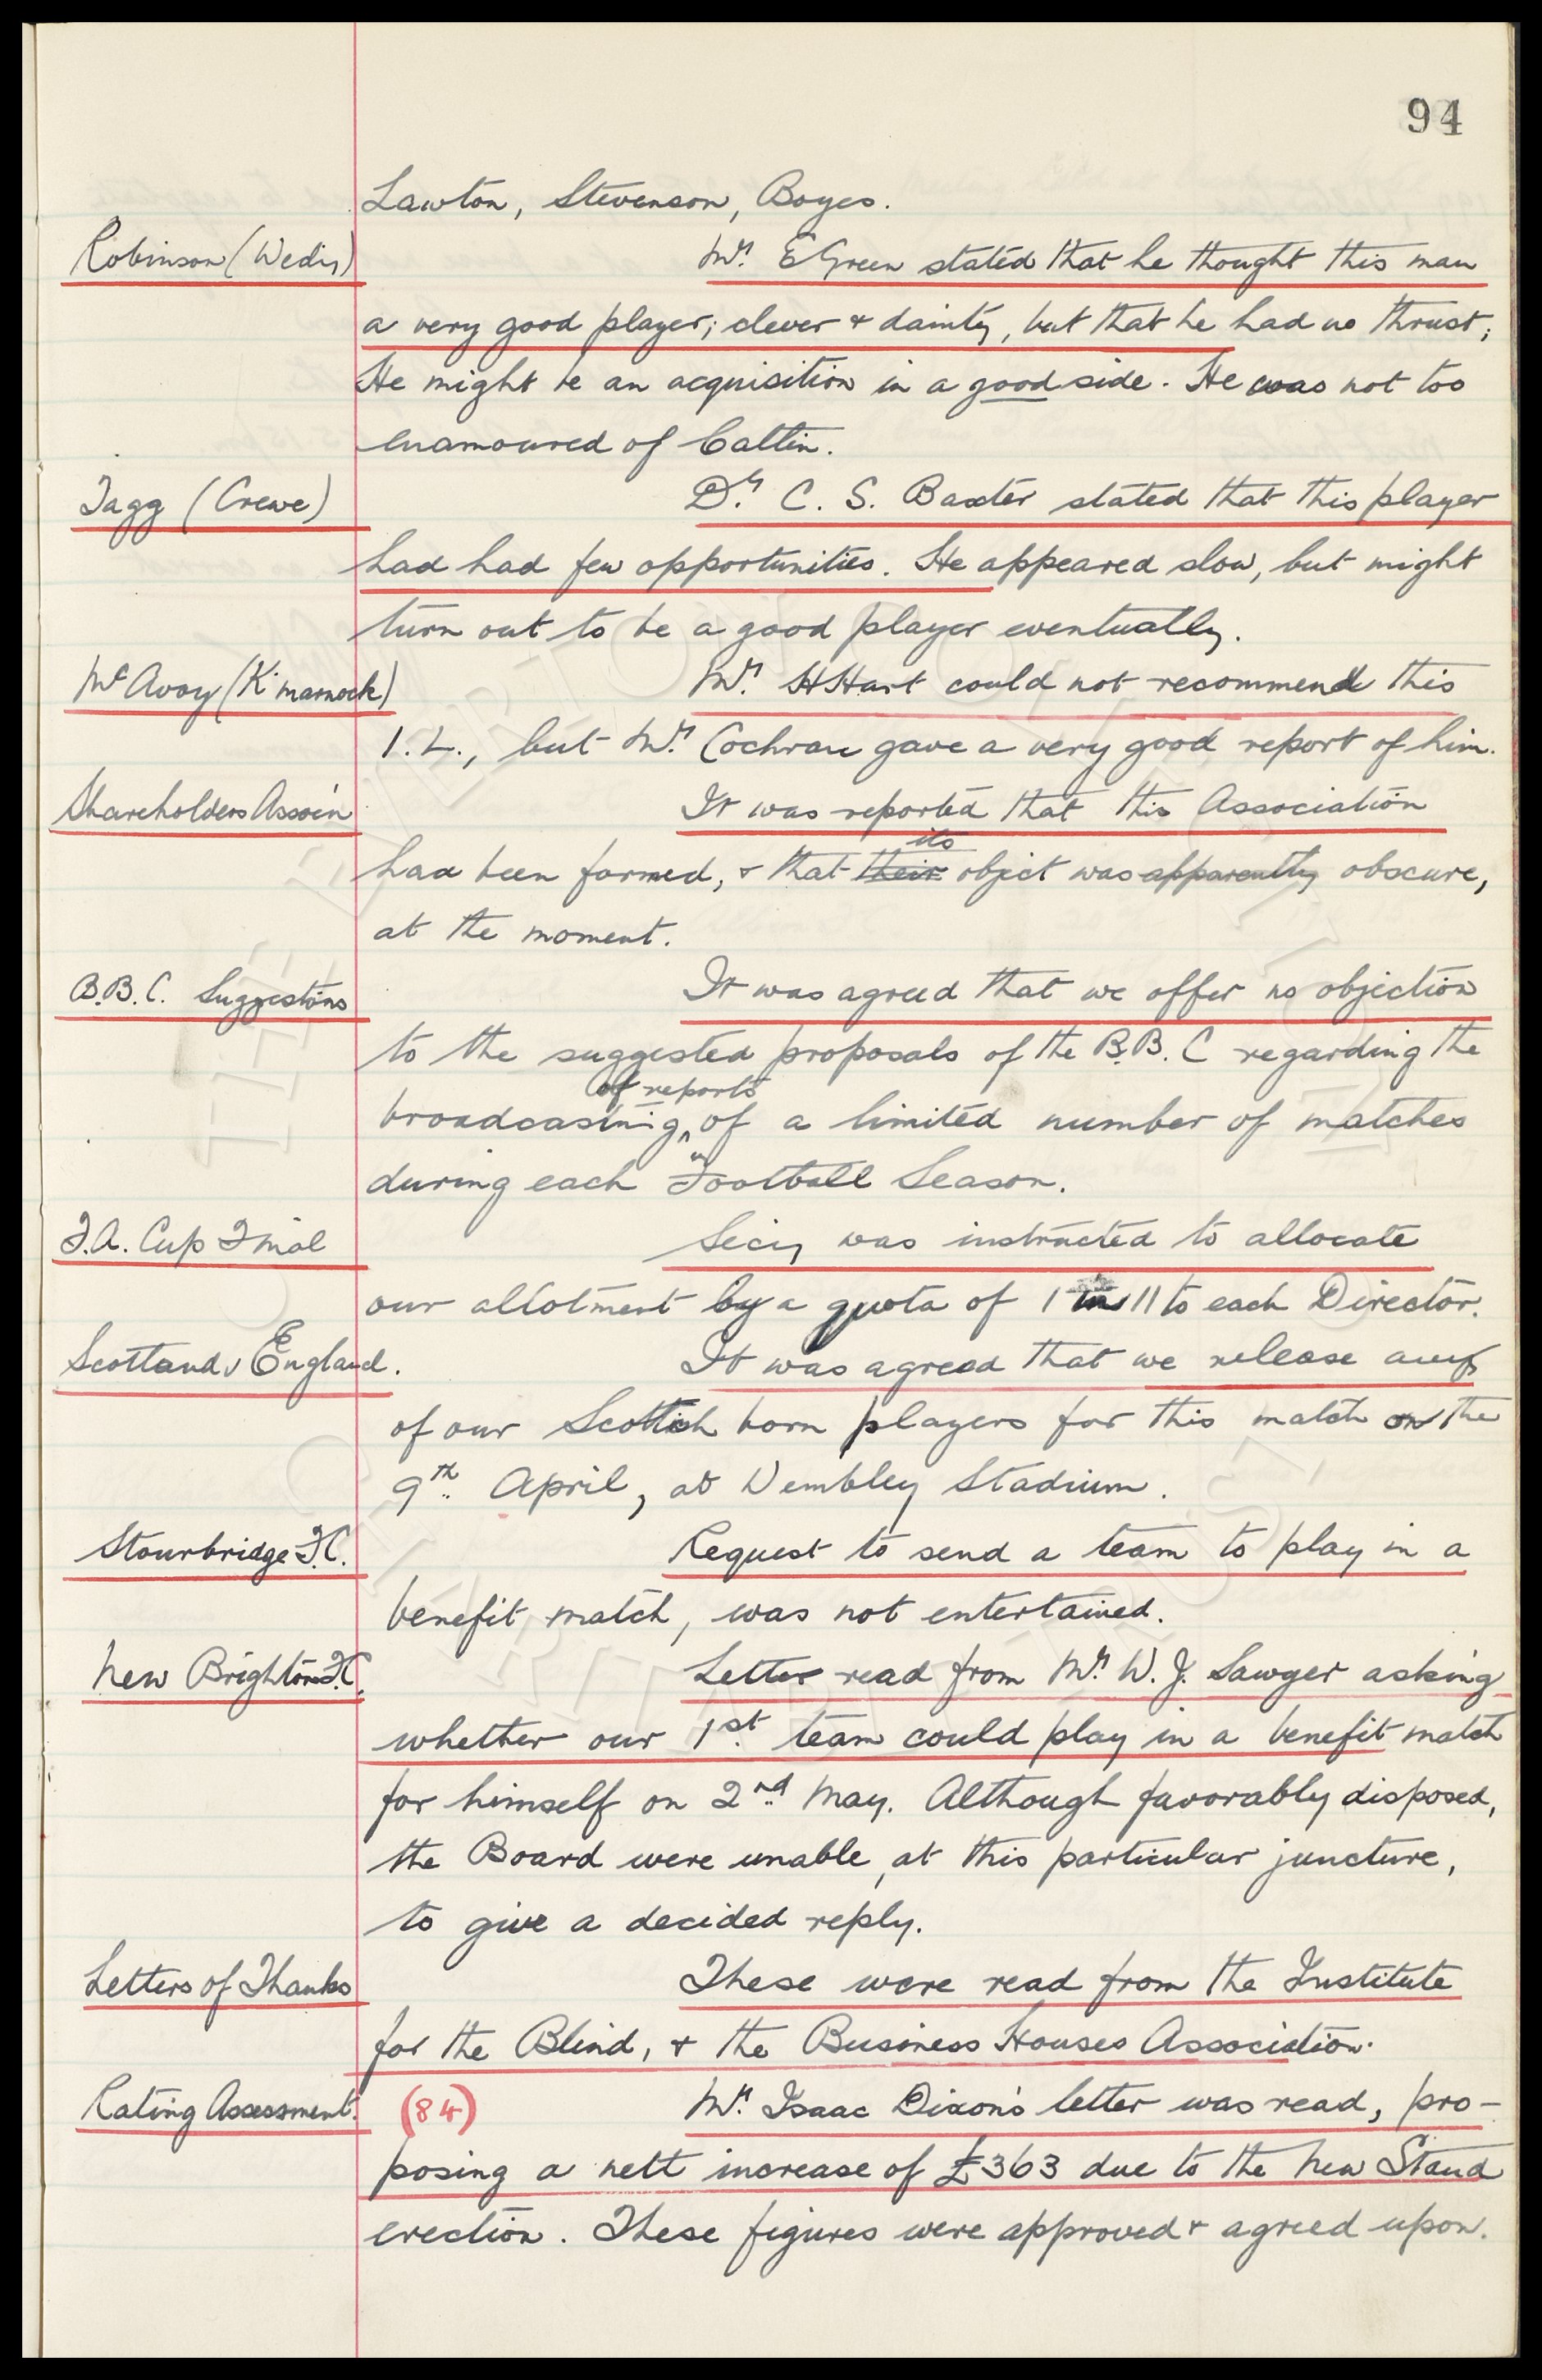 94
Lawton, Stevenson, Boyes.
Robinson (Wedy) Mr. E Green stated that he thought this man
a very good player; clever & dainty, but that he had no thrust;
He might be an acquisition in a good side. He was not too
enamoured of Catlin.
Tagg (Crewe) Dr. C. S. Baxter stated that this player
had had few opportunities. He appeared slow, but might
turn out to be a good player eventually.
McAvoy (K'marnock) Mr. H Hart could not recommend this
I.L., but Mr. Cochran gave a very good report of him.
Shareholders Assocn It was reported that this Association
had been formed, & that their its object was apparently obscure,
at the moment.
B.B.C. Suggestions It was agreed that we offer no objection
to the suggested proposals of the B.B.C regarding the
broadcasting of reports of a limited number of matches
during each Football Season.
F.A. Cup Final Secy was instructed to allocate
our allotment by a quota of 1 in 11 to each Director.
Scotland v England. It was agreed that we release any
of our Scottish born players for this match on the
9th April, at Wembley Stadium.
Stourbridge F.C. Request to send a team to play in a
benefit match, was not entertained.
New Brighton F.C. Letter read from Mr. W. J. Sawyer asking
whether our 1st team could play in a benefit match
for himself on 2nd May. Although favorably disposed,
the Board were unable, at this particular juncture,
to give a decided reply.
Letters of Thanks These were read from the Institute
for the Blind, & the Business Houses Association.
Rating Assessment. (84) Mr. Isaac Dixon's letter was read, pro-
posing a nett increase of £363 due to the new Stand
erection. These figures were approved & agreed upon.